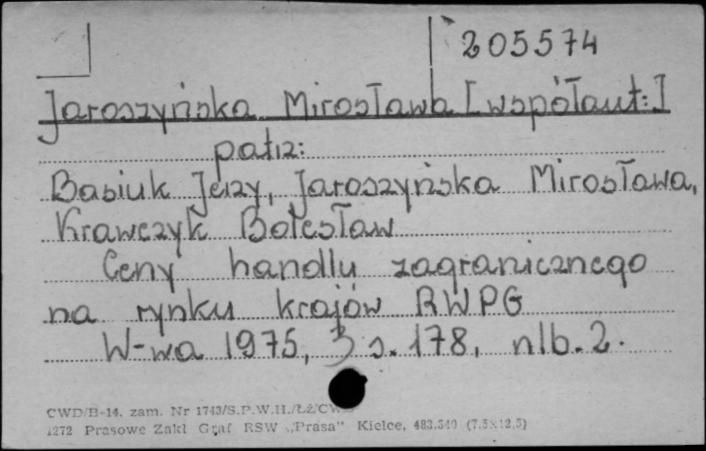 205574
Jaroszyńska Mirosława [współaut:]
patrz:
Basiuk Jerzy, Jaroszyńska Mirosława,
Krawczyk Bolesław
Ceny handlu zagranicznego
na rynku krajów RWPG
W-wa 1975, s. 178, nlb. 2.
CWD/B-14. zam. Nr 1743/S.P.W.H./ŁŻ/CW
1272 Prasowe Zakł Graf RSW „Prasa" Kielce, 483.340 (7,5x12,5)